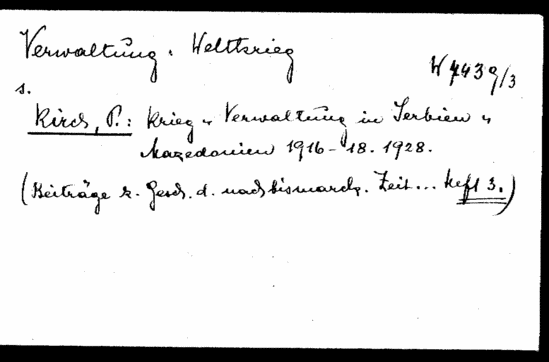 Verwaltung. Weltkrieg
W 443 g/3
s.
Kirch, P.: Krieg u Verwaltung in Serbien u
Mazedonien 1916-18. 1928.
(Beiträge z. Gesch. d. nachbismarck. Zeit... Heft 3.)